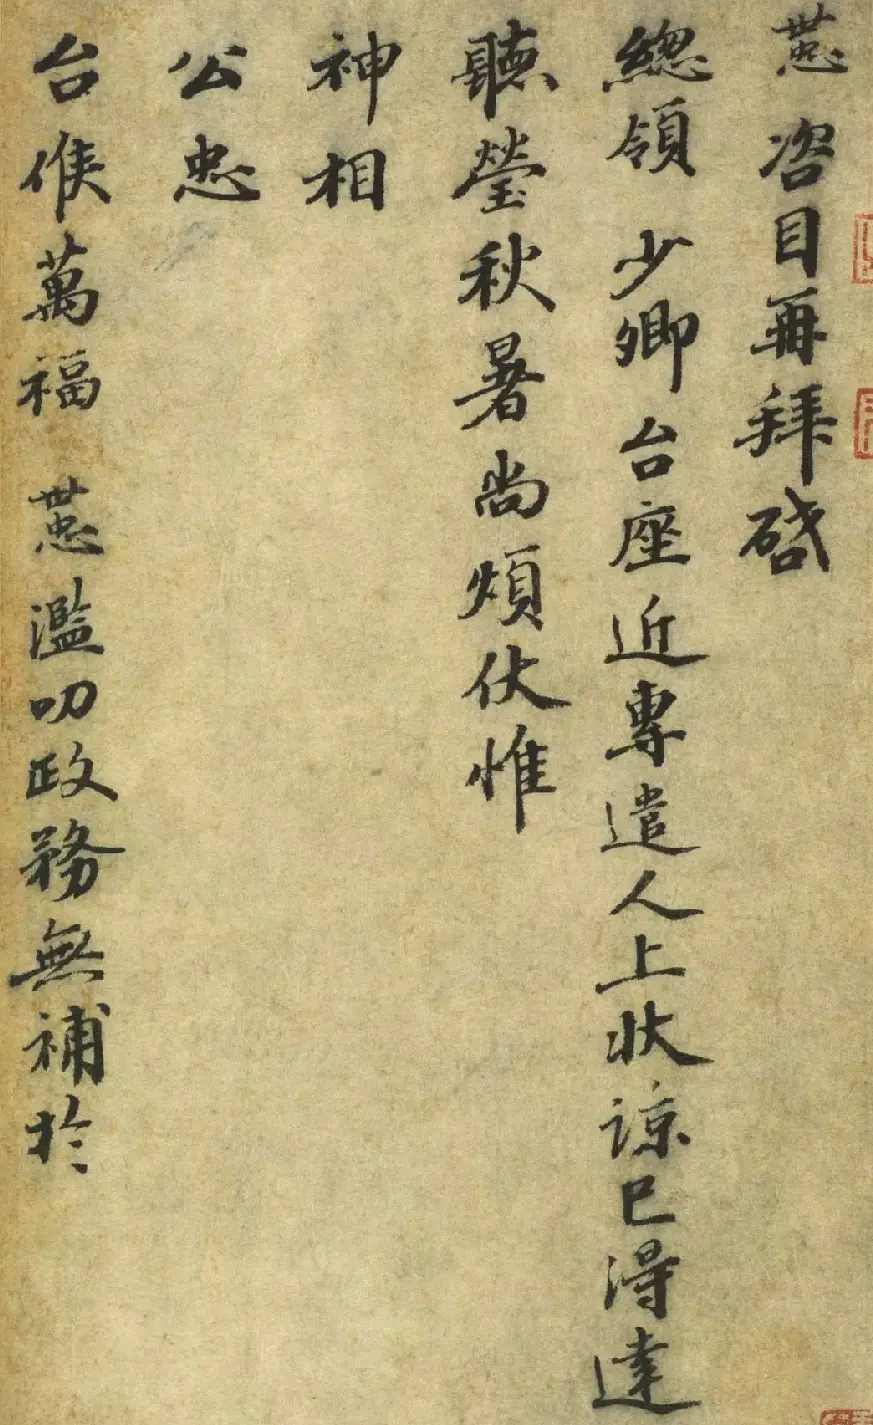 世忠 咨目再拜啓
總領 少卿台座近專遣人上狀諒已得達
聽瑩秋暑尚煩伏惟
神相
公忠
台候萬福 世忠濫叨政務無補於